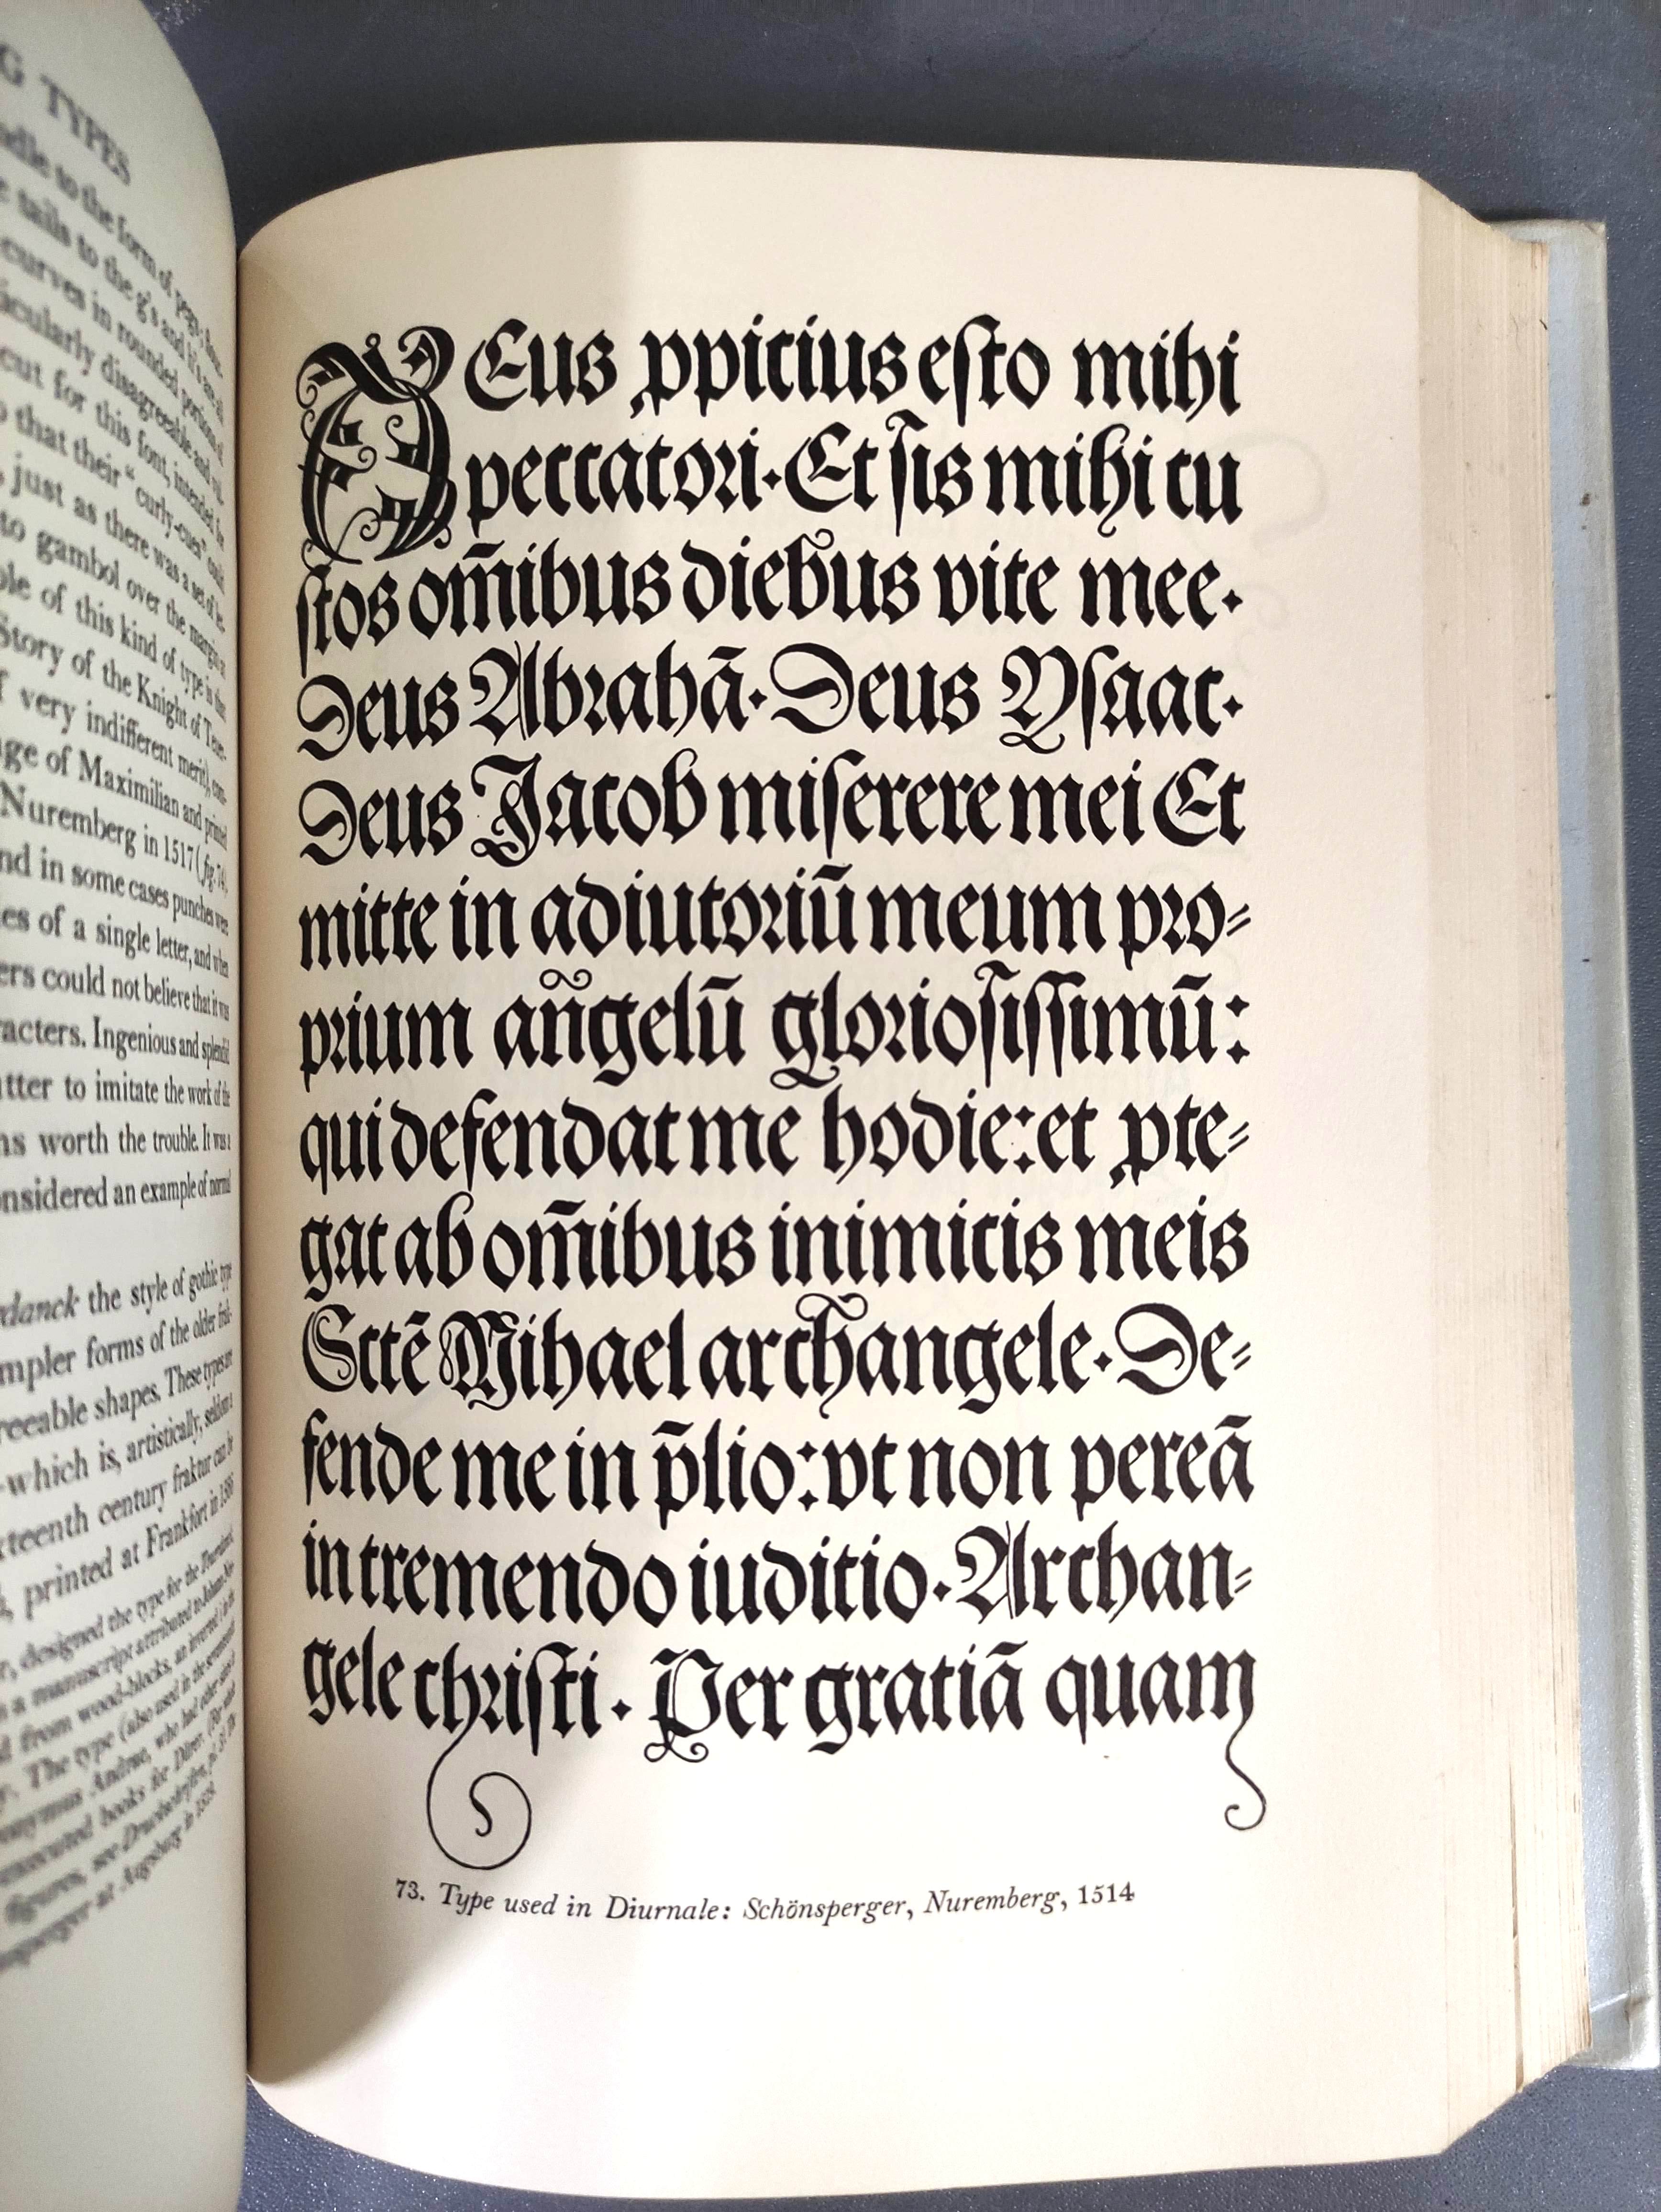 G TYPES
to the form of
tails to the g's and h's are
curves in rounded portions
disagreeable and
cut for this font, intended for
that their "curly-cues" could
just as there was a set of
to gambol over the margin
of this kind of type is that
Story of the Knight of
very indifferent merit), com-
of Maximilian and printed
Nuremberg in 1517 (fig. 74).
in some cases punches were
of a single letter, and when
could not believe that it was
racters. Ingenious and splendid
to imitate the work of the
worth the trouble. It was a
onsidered an example of normal
danck the style of gothic type
mpler forms of the older frak-
reeable shapes. These types are
-which is, artistically, seldom a
xteenth century fraktur can be
printed at Frankfort in
designed the type for the Diurnale
a manuscript attributed to Johann
from wood-blocks, an inverted i in the
The type (also used in the
Andrae, who had other
executed books for Dürer.
figures, see
at Augsburg in
DEus ꝓpicius esto mihi
peccatori. Et sis mihi cu
stos om̄ibus diebus vite mee.
Deus Abrahā. Deus Ysaac.
Deus Jacob miserere mei Et
mitte in adiutoriū meum pro-
prium an̄gelū gloriosissimū:
qui defendat me hodie: et ꝓte-
gat ab om̄ibus inimicis meis
Sctē Mihael archangele. De-
fende me in p̄lio: vt non pereā
in tremendo iuditio. Archan-
gele christi. Per gratiā quam
73. Type used in Diurnale: Schönsperger, Nuremberg, 1514